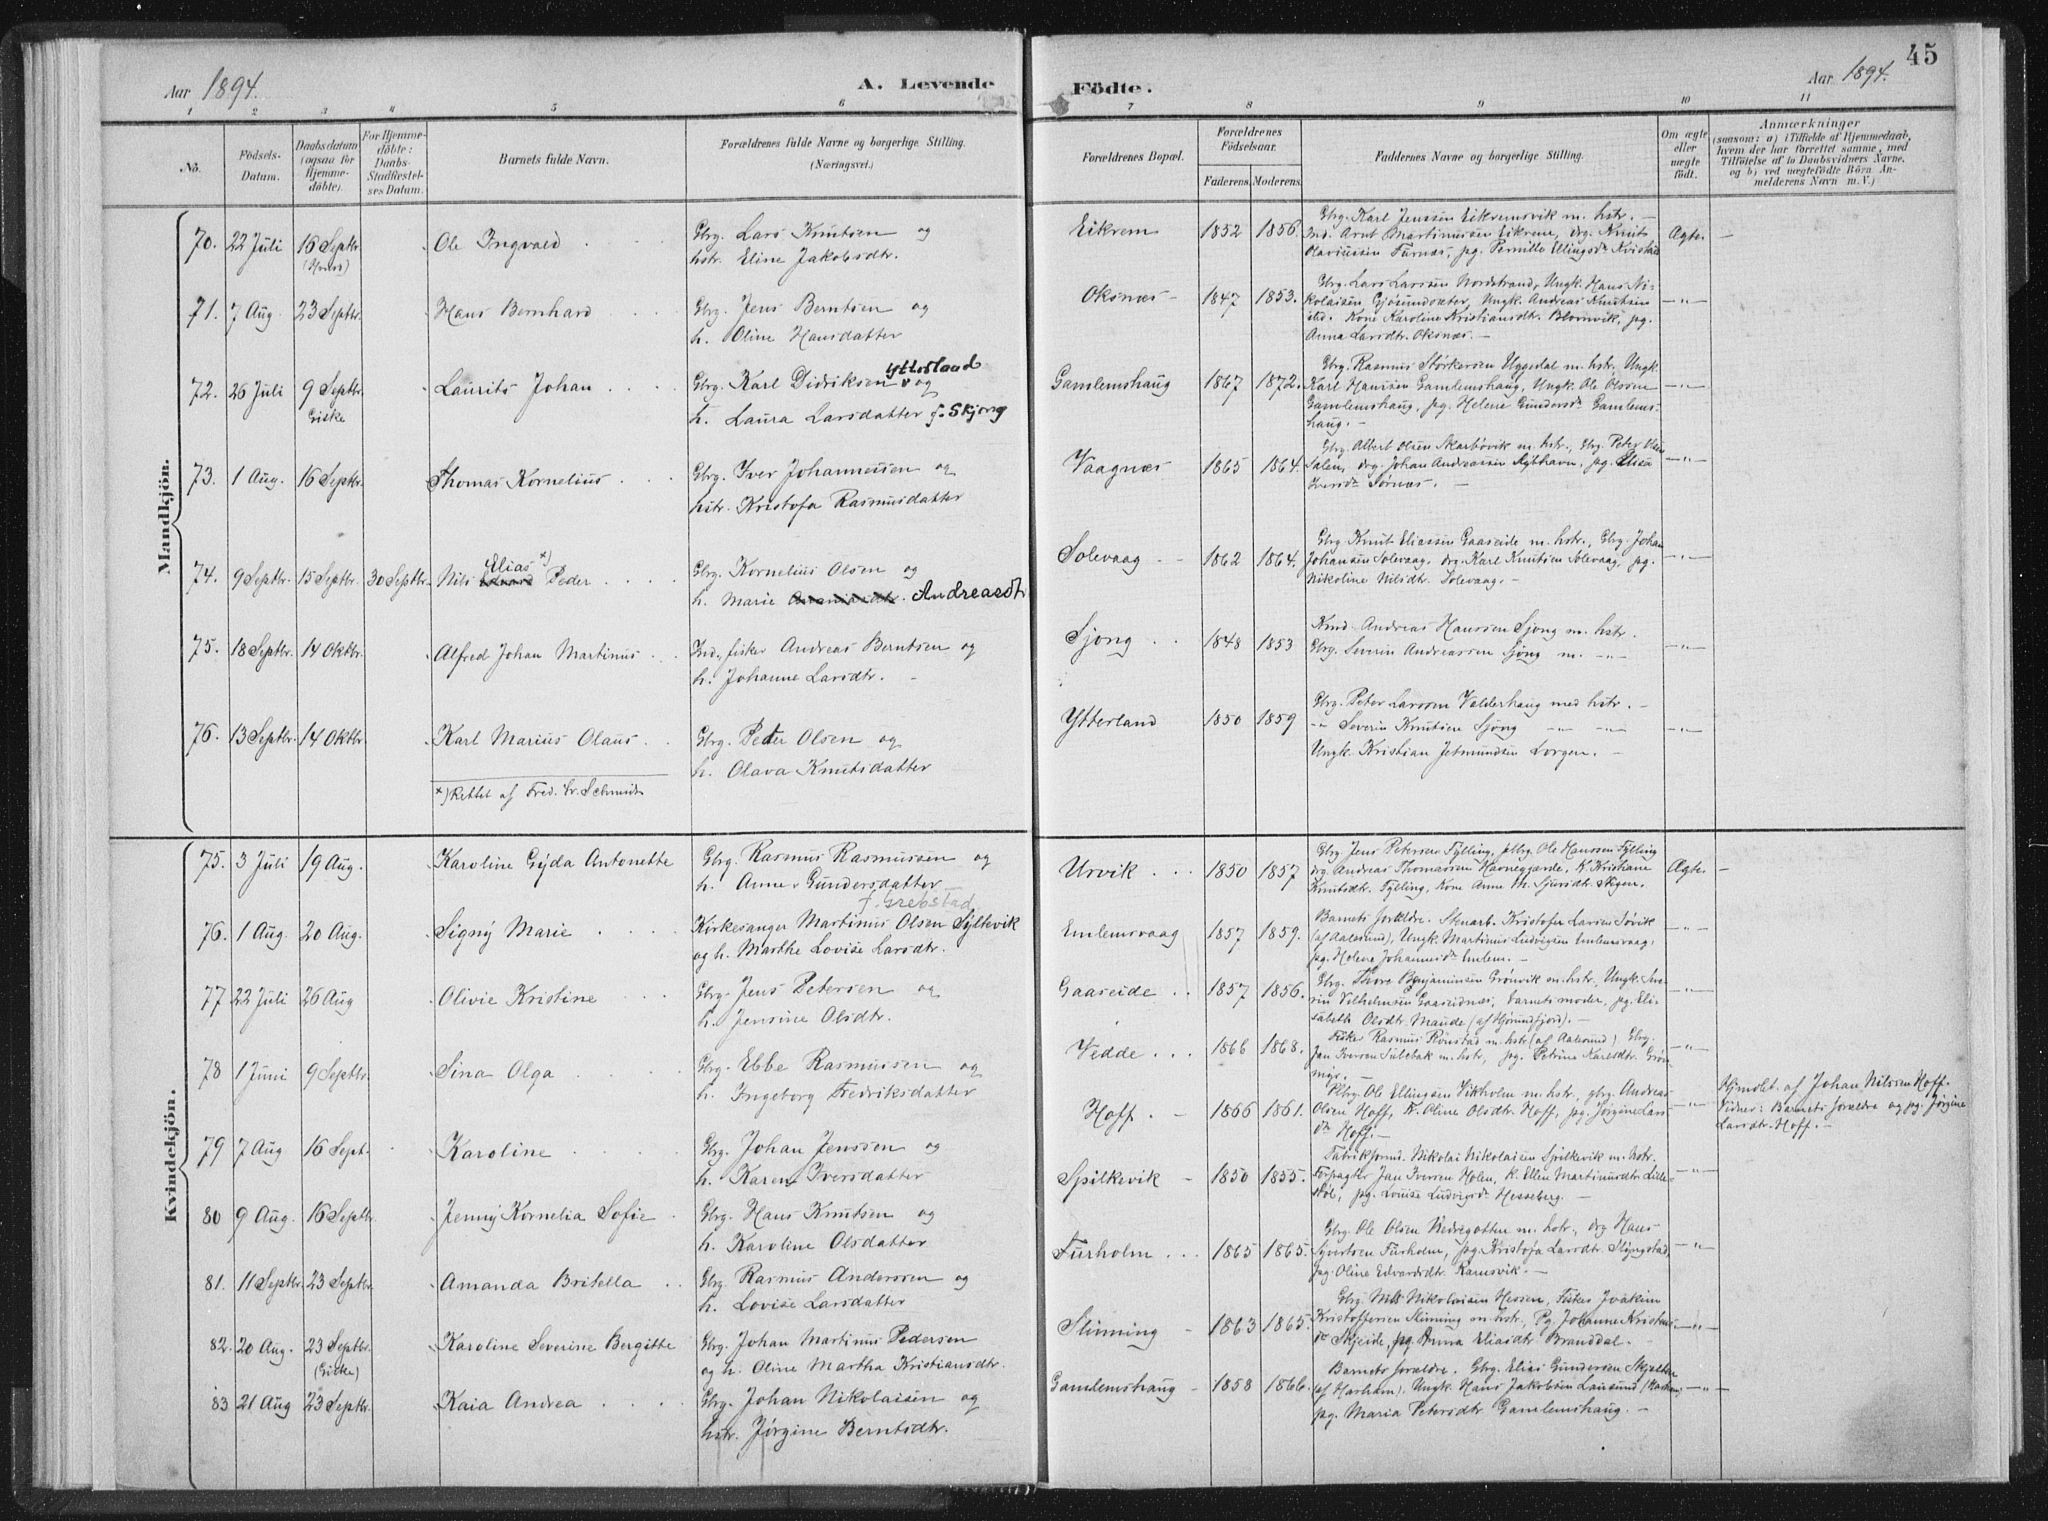 Aar 1894.
A. Levende
1 2 3 4 5 6
No.
Födsels-
Datum.
Daabsdatum
(ogsaa for
Hjemme-
döbte).
For Hjemme-
döbte:
Daabs-
Stadfæstel-
ses Datum.
Barnets fulde Navn.
Forældrenes fulde Navne og borgerlige Stilling.
(Næringsvei.)
Mandkjön.
70. 22 Juli 16 Septbr. Ole Ingvald Gbrg. Lars Knutsen og
hstr. Eline Jakobsdtr.
71. 7 Aug. 23 Septbr. Hans Bernhard Gbrg. Jens Berntsen og
h. Oline Hansdatter
Ytterland
72. 26 Juli 9 Septbr. Laurits Johan Gbrg. Karl Didriksen og
Giske h. Laura Larsdatter f. Skjong
73. 1 Aug. 16 Septbr. Thomas Kornelius Gbrg. Iver Johannessen og
hstr. Kristofa Rasmusdatter
Elias x)
74. 9 Septbr. 15 Septbr. 30 Septbr. Nils Peder Gbrg. Kornelius Olsen og
h. Marie Andreasdtr
75. 18 Septbr. 14 Oktbr. Alfred Johan Martinus Ind. fisker Andreas Berntsen og
h. Johanne Larsdtr.
76. 13 Septbr. 14 Oktbr. Karl Marius Olaus Gbrg. Peder Olsen og
h. Olava Knutsdatter
x) Rettet af Fred. Gr. Schmidt
Kvindekjön.
75. 3 Juli 19 Aug. Karoline Gyda Antonette Gbrg. Rasmus Rasmussen og
h. Anne Gundersdatter
f. Grebstad
76. 1 Aug. 20 Aug. Signy Marie Kirkesanger Martinus Olsen Sylkevik
og h. Marthe Lovise Larsdtr.
77 22 Juli 26 Aug Olivie Kristine Gbrg. Jens Petersen og
h. Jensine Olsdtr.
78 1 Juni 9 Septbr. Sina Olga Gbrg. Ebbe Rasmussen og
h. Ingeborg Fredriksdatter
79 7 Aug 16 Sept. Karoline Gbrg. Johan Jenssen og
h. Karen Iversdatter
80 9 Aug. 16 Septbr. Jenny Kornelia Sofie Gbrg. Hans Knutsen og
h. Karoline Olsdatter
81. 11 Septbr. 23 Septbr. Amanda Britella Gbrg. Rasmus Anderssen og
h. Lovise Larsdatter
82. 20 Aug. 23 Septbr. Karoline Severine Bergitte Gbrg. Johan Martinus Pedersen
(Giske) og h. Oline Martha Kristiansdtr.
83 21 Aug 23 Septbr. Kaia Andrea Gbrg. Johan Nikolaisen og
hstr. Jørgine Berntsdtr.
45
Födte.
Aar 1894.
7 8 9 10 11
Forældrenes Bopæl.
Forældrenes
Födselsaar.
Faderens. Moderens.
Faddernes Navne og borgerlige Stilling.
Om ægte
eller
uægte
födt.
Anmærkninger
(saasom: a) i Tilfælde af Hjemmedaab,
hvem der har forrettet samme, med
Tilföielse af to Daabsvidners Navne,
og b) ved uægtefödte Börn An-
melderens Navn m. V.)
Gbrg. Karl Jenssen Eikremsvik m. hstr. –
Eikrem 1852 1856. Ind. Arnt Martinussen Eikrem, drg. Knut Ægte. –
Olaviussen Furnæs, pg. Pernille Ellingsdr. Kvistad
Gbrg. Lars Larssen Nordstrand, Ungk. Hans Ni-
Oksnæs – 1847 1853. kolaisen Gjøsundsæter, Ungk. Andreas Knutsen –"–
ibid. Kone Karoline Kristiansdtr. Blomvik, pg.
Anna Larsdtr. Oksnæs. –
Gbrg. Rasmus Størkersen Uggedal m. hstr., Ungk.
Gamlemshaug 1867 1872. Karl Hansen Gamlemshaug, Ungk. Ole Olsen –"–
Gamlemshaug, pg. Helene Gundersdr. Gamlems-
haug. –
Gbrg. Albert Olsen Skarbøvik m. hstr., Gbrg. Peter Olsen
Vaagnæs 1865 1864. Salen, drg. Johan Andreassen Nybhavn, pg. Elisa –"–
Iversdr. Sørnæs. –
Gbrg Knut Eliassen Gaaseide m. hstr., Gbrg. Johan
Solevaag – 1862 1864. Johansen Solevaag, drg. Karl Knutsen Solevaag, pg. –"–
Nikoline Nilsdtr. Solevaag. –
Sjong 1848 1853 Andreas Hanssen Sjong m. hstr.
Gbrg. Severin Andreassen Sjong m. –"– –"–
Gbrg. Peter Larssen Valderhaug med hstr. –
Ytterland 1850 1859 –"– Severin Knutsen Sjong –"– –"– –"–
Ungk. Kristian Jetmundsen Lorgen. –
Gbrg Jens Petersen Fylling, Ole Hanssen Fylling
Urvik 1850 1857 drg. Andreas Thomassen Havnegjærde, K. Kristiane Ægte. –
Knutsdtr. Fylling, Kone Anne M. Sjursdtr. Skjen. –
Barnets forældre. Stenarb. Kristofer Larsen Søvik
Emlemsvaag 1857 1859. (af Aalesund), Ungk. Martinus Ludvigsen Emlemsvaag, –"–
pg. Helene Johannesdr. Emlem.
Gbrg. Thore Benjaminsen Grönvik m. hstr., Ungk.
Gaaseide 1857 1856. Vilhelmsen Gaaseidnæs, barnets moder, pg. Eli- –"–
sabeth Olsdtr. Maude (af Hjørundfjord). –
Fisker Rasmus Rönstad m. hstr. (af Aalesund) Gbrg.
Vedde 1866 1868. Jan Iversen Sulebak m. hstr., pg. Petrine Karlsdtr. –"–
Ole Ellingsen Vikholm m. hstr., gbrg. Andreas
Hoff. – 1866 1861. Olsen Hoff, K. Oline Olsdtr. Hoff, pg. Jørgine Lars- –"–
dr. Hoff. –
Hjmdbt. af Johan Nilssen Hoff.
Vidner: Barnets forældre og pg. Jørgine
Larsdtr. Hoff. –
Fabrikformd. Nikolai Nikolaisen Spilkevik m. hstr.
Spilkevik – 1850 1855. Forpagter Jan Iversen Holen, K. Ellen Martinusdtr. Lille- –"–
støl, pg. Louise Ludvigsdr. Hesseberg. –
Gbrg. Ole Olsen Nedregotten m. hstr., drg Hans
Furholm 1865 1865. Syvertsen Furholm, pg. Kristofa Larsdtr. Slyngstad, –"–
pg. Oline Edvardsdtr. Ramsvik. –
Gbrg. Nils Nikolaisen Hessen, Fisker Joakim
Slinning – 1863 1865. Kristoffersen Slinning m. hstr., Pg. Johanne Kristens- –"–
dr. Skjeide, pg. Anna Eliasdtr. Branddal. –
Barnets forældre. Gbrg. Elias Gundersen Skjelten
Gamlemshaug – 1858 1866. (af Harham). Ungk. Hans Jakobsen Lausund –"–
pg. Maria Petersdtr. Gamlemshaug. –